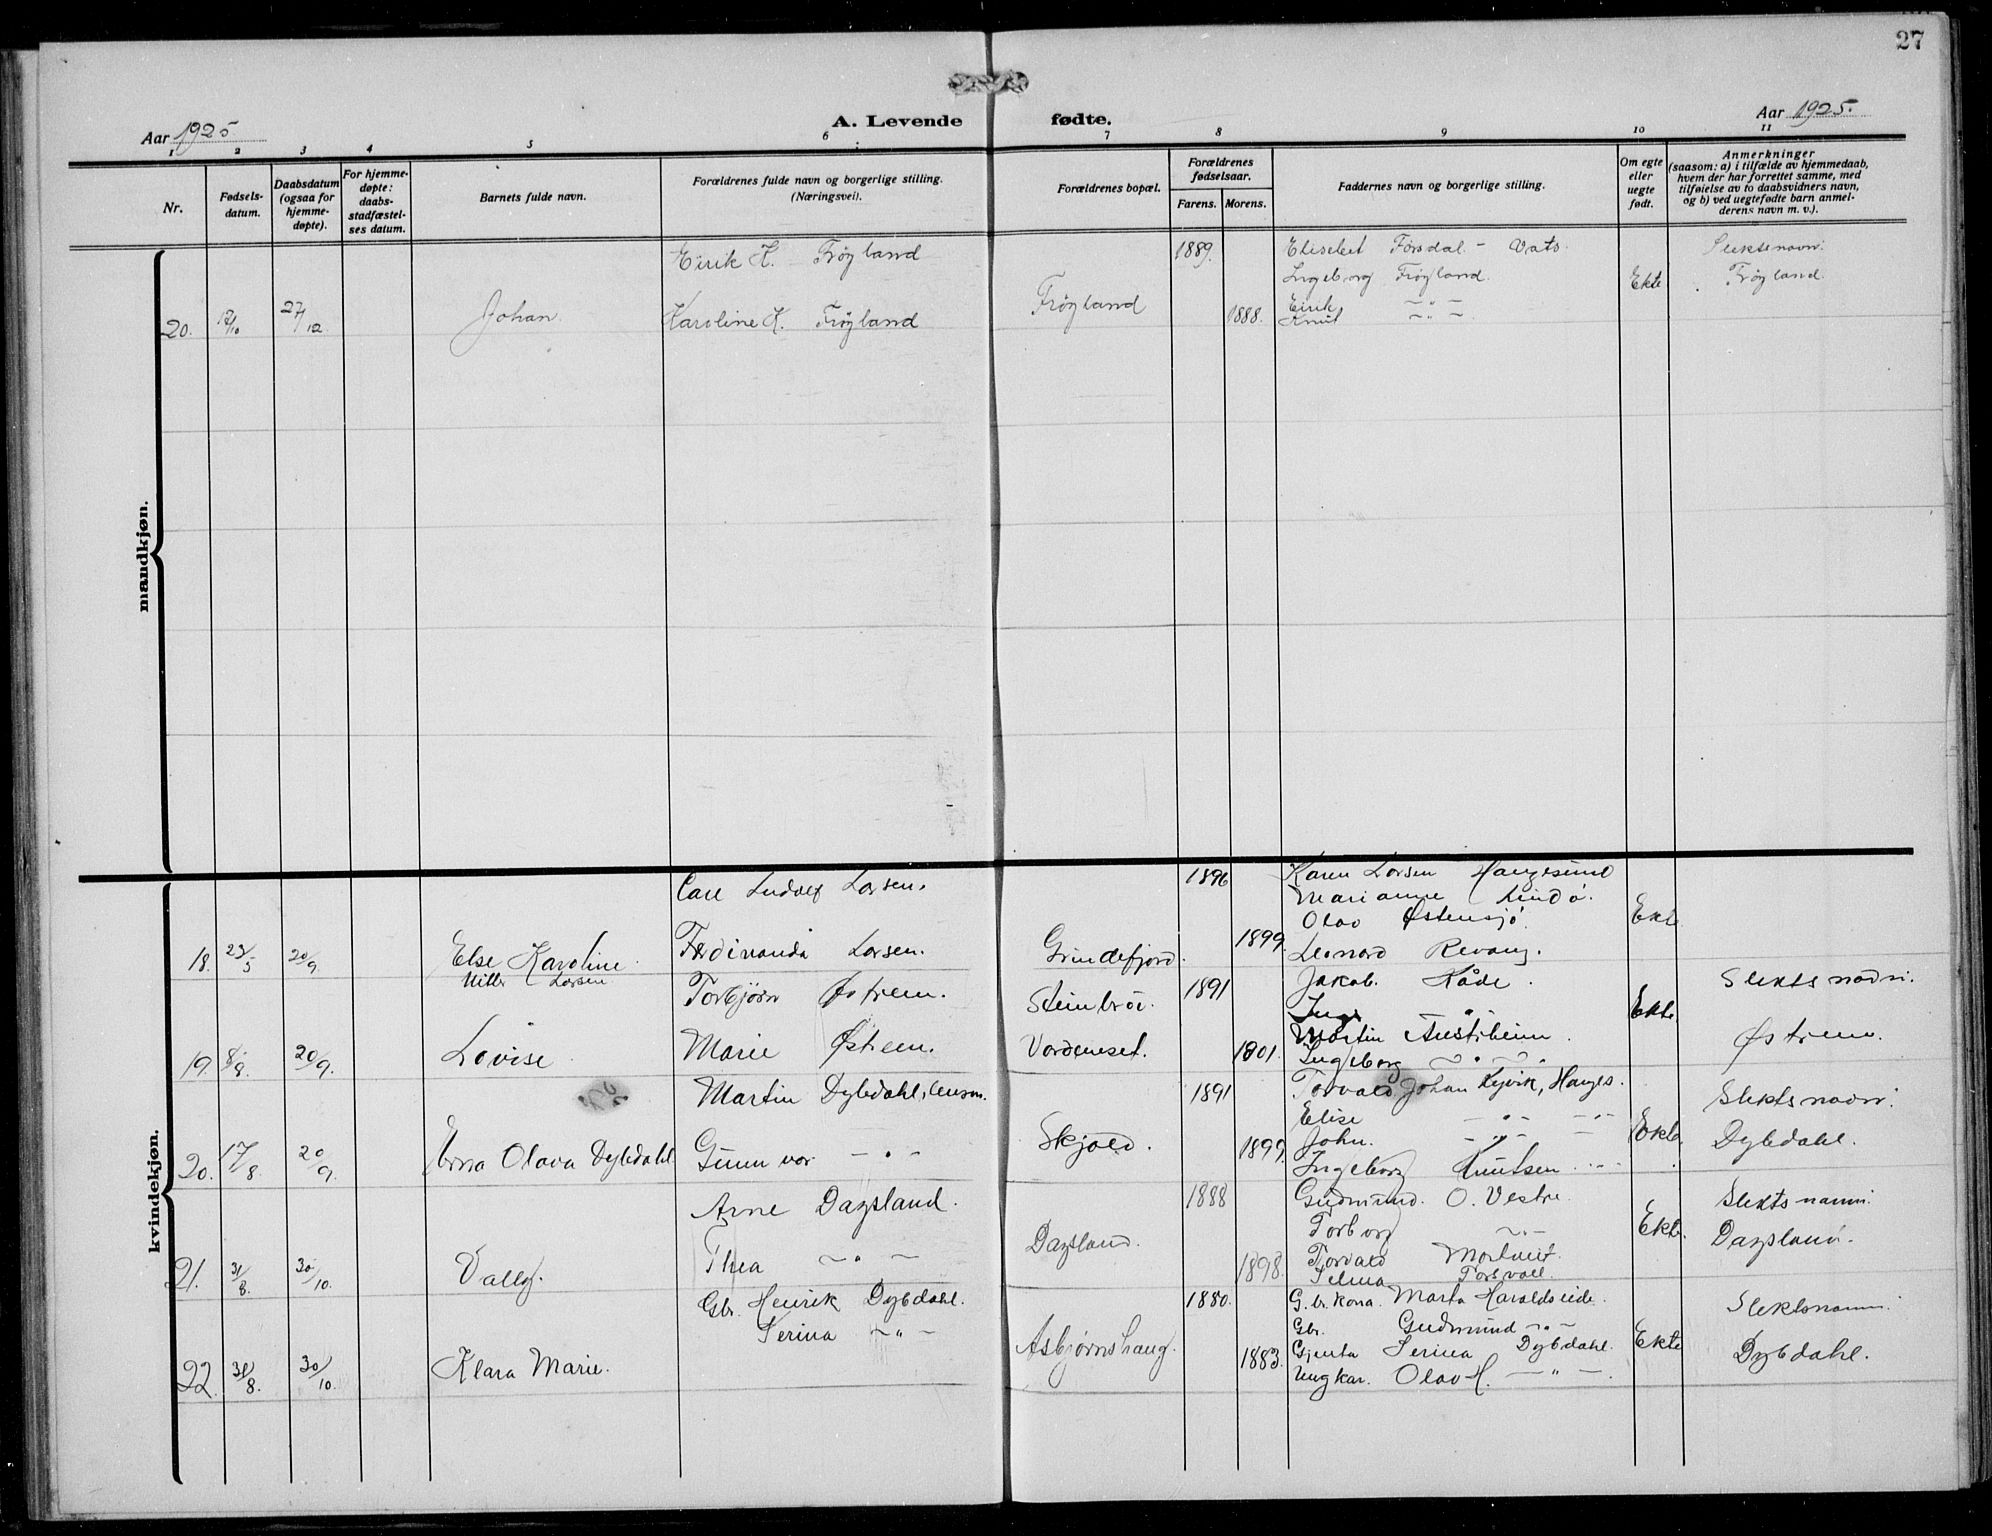 27
Aar 1925
A. Levende fødte.
Aar 1925.
1 2 3 4 5 6 7 8 9 10 11
Nr.
Fødsels-
datum.
Daabsdatum
(ogsaa for
hjemme-
døpte).
For hjemme-
døpte:
daabs-
stadfæstel-
ses datum.
Barnets fulde navn.
Forældrenes fulde navn og borgerlige stilling.
(Næringsvei).
Forældrenes bopæl.
Forældrenes
fødselsaar.
Farens. Morens.
Faddernes navn og borgerlige stilling.
Om egte
eller
uegte
født.
Anmerkninger
(saasom: a) i tilfælde av hjemmedaab,
hvem der har forrettet samme, med
tilføielse av to daabsvidners navn,
og b) ved uegtefødte barn anmel-
derens navn m. v.).
mandkjøn.
20. 27/12 Johan.
Eirik K. Frøyland
Karoline K. Frøyland
Frøyland
1889.
1888.
Elisebet Førsdal - Vats.
Ingeborg Frøyland.
Eirik -"-
Knut -"-
Ekte
Slektsnavn:
Frøyland
kvindekjøn.
18. 23/5 20/9 Else Karoline
Larsen
Carl Ludolf Larsen.
Ferdinanda Larsen.
Grindefjord.
1896
1899.
Karen Larsen Haugesund
Marianne Lindø.
Olav Østensjø.
Leonard Revang.
Ekte
19. 8/8. 20/9. Lovise
Torbjørn Østrem.
Marie Østrem.
Vordeneset.
1891
1901.
Jakob Kåde.
Inga "
Martin Austrheim.
Ingeborg -"-
Ekte
Slektsnavn.
Østrem.
20. 17/8. 20/9. Erna Olava Dybdahl
Martin Dybdahl, lensm.
Gunnvor -"-
Skjold.
1891
1899.
Torvald Johan Kyvik, Hauges.
Elise -"- -"-
John. -"- -"-
Ingeborg Knutsen
Ekte.
Slektsnavn:
Dybdahl.
21. 31/8. 30/10. Vally.
Arne Dagsland.
Thea -"-
Dagsland.
1888
1898.
Gudmund. O. Vestre.
Torborg -"-
Torvald Mortveit.
Selma Forsvoll.
Ekte.
Slektsnamn:
Dagsland.
22. 31/8. 30/10. Klara Marie.
Gbr. Henrik Dybdahl.
Serina -"-
Asbjørnshaug.
1880.
1883.
G.br.kona. Marta Haraldseide.
Gbr. Gudmund -"-
Gjenta Serina Dybdahl.
Ungkar. Olav H. -"-
Ekte
Slektsnamn:
Dybdahl.